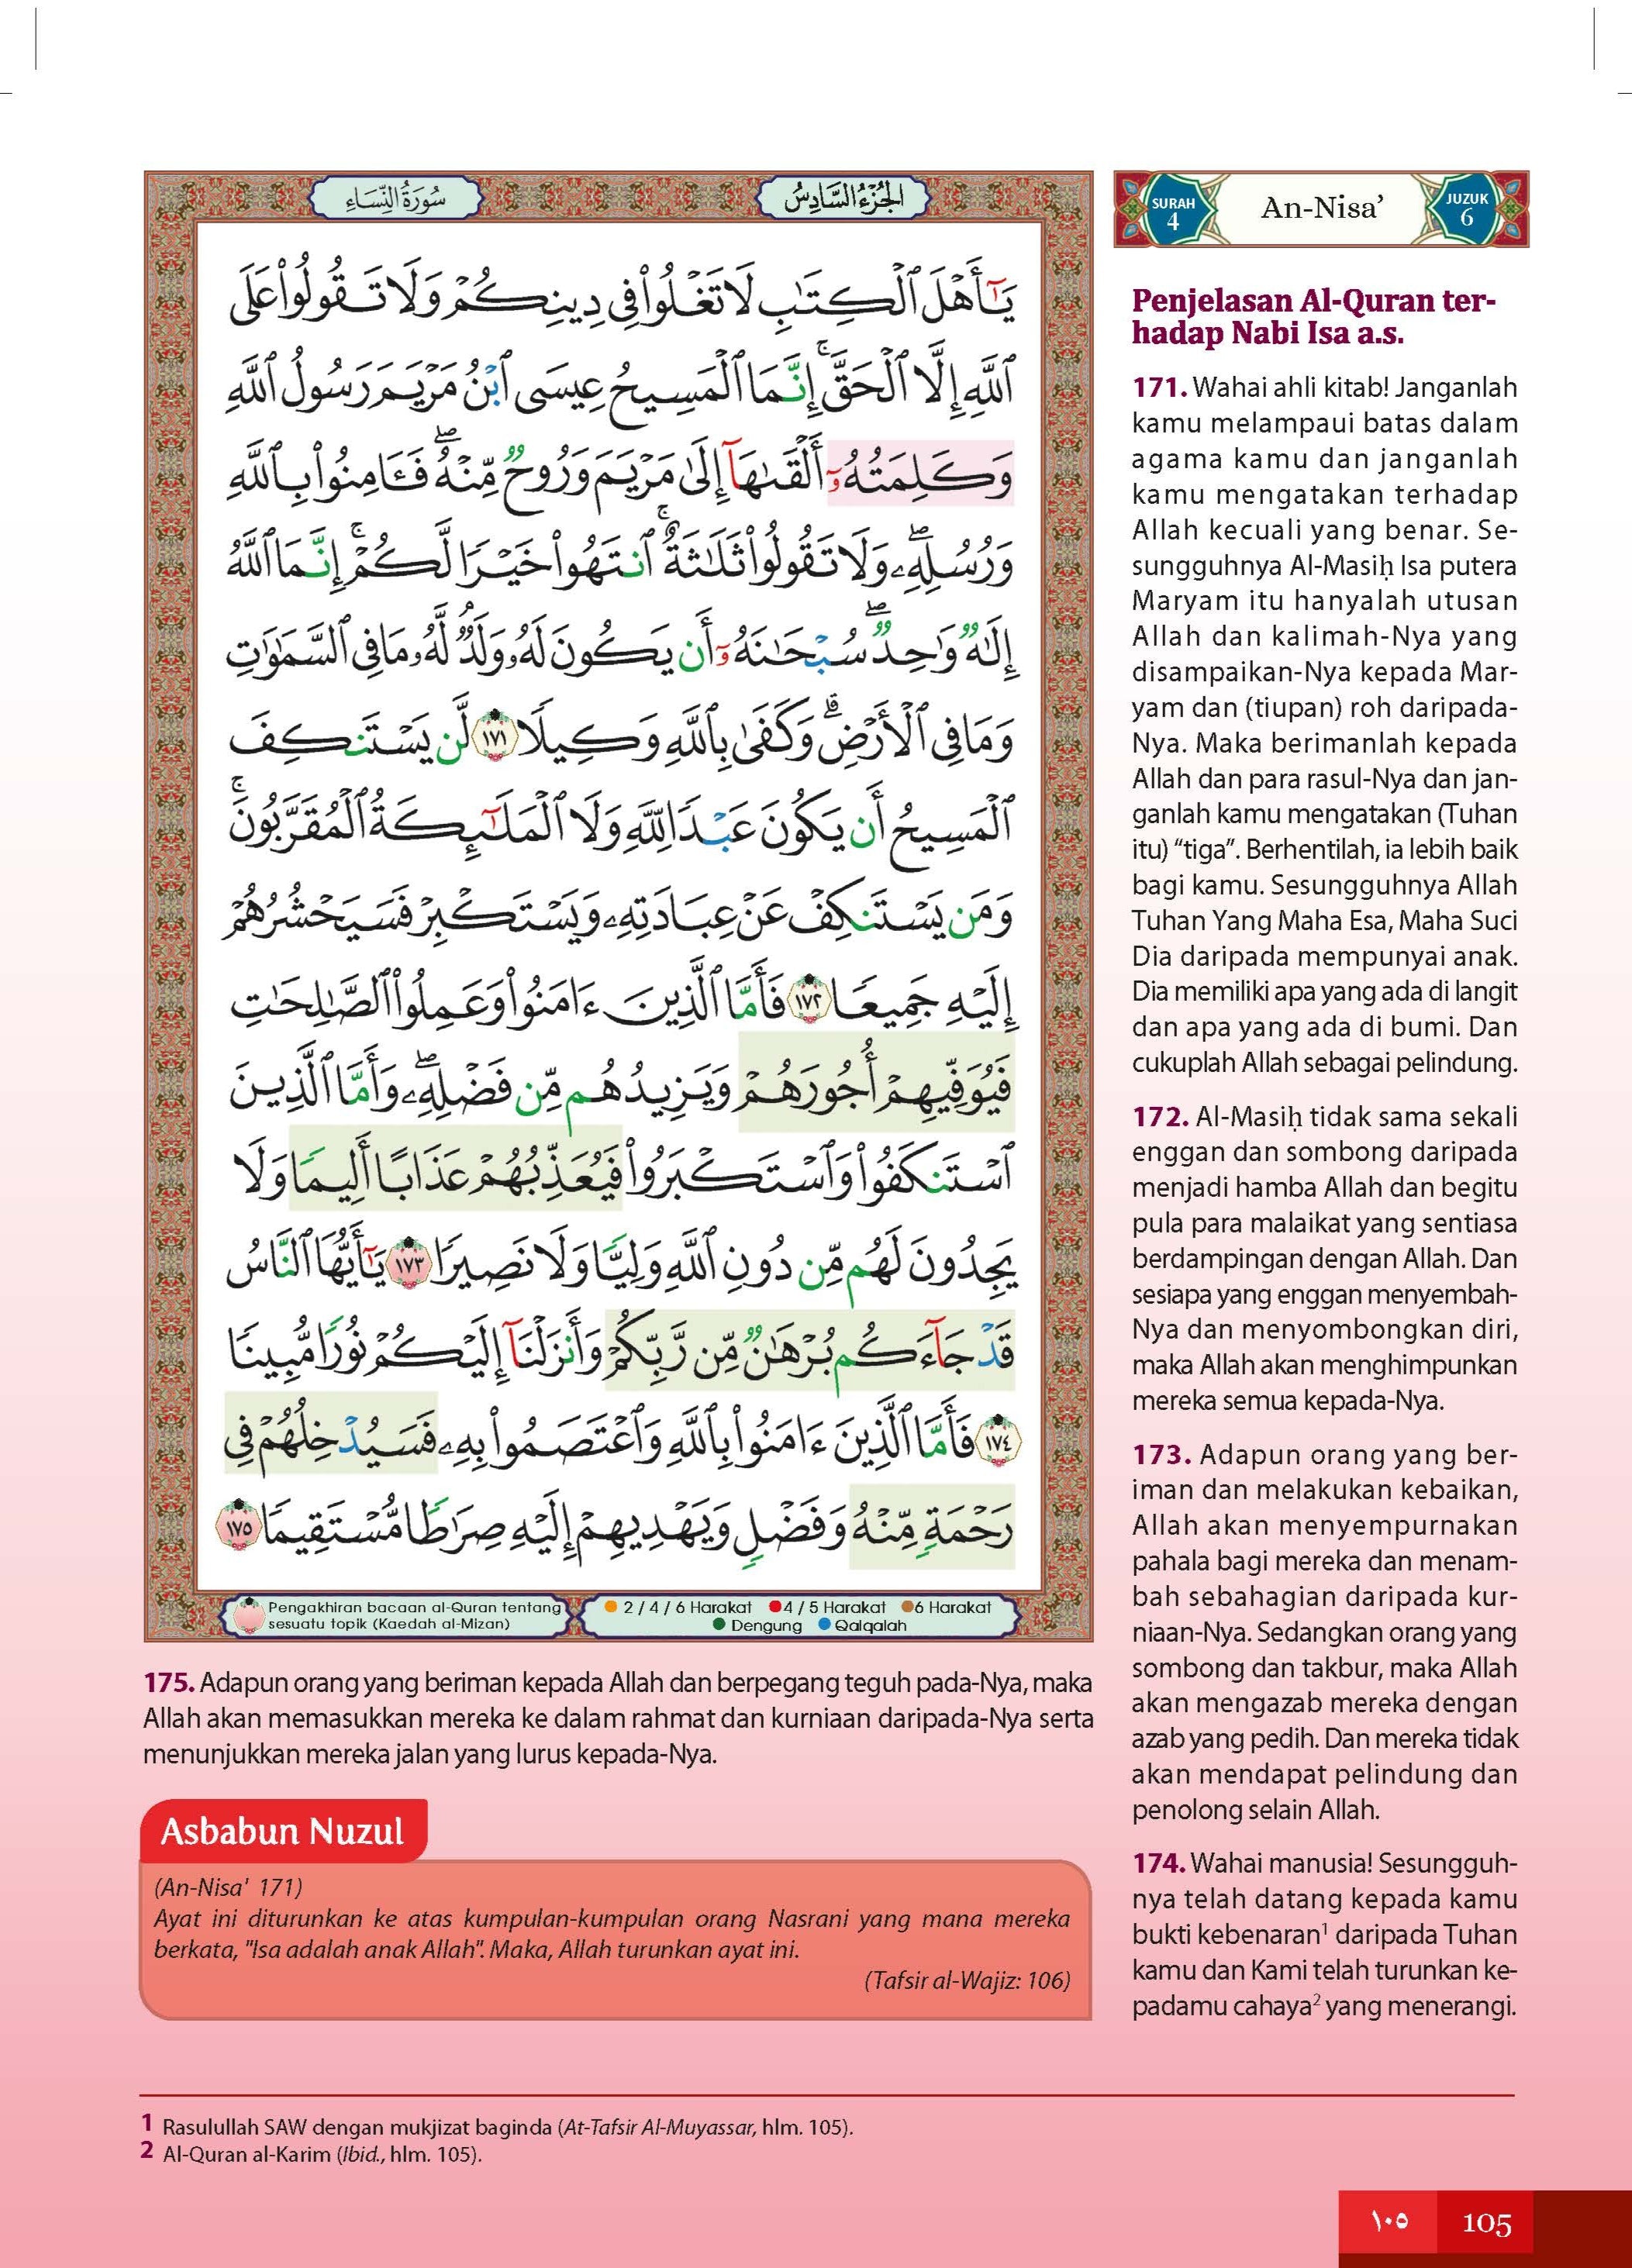 سُورَةُ النِّسَاءِ
الجُزْءُ السَّادِسُ
SURAH
4
An-Nisa’
JUZUK
6
يَٰٓأَهْلَ ٱلْكِتَٰبِ لَا تَغْلُوا۟ فِى دِينِكُمْ وَلَا تَقُولُوا۟ عَلَى
ٱللَّهِ إِلَّا ٱلْحَقَّ ۚ إِنَّمَا ٱلْمَسِيحُ عِيسَى ٱبْنُ مَرْيَمَ رَسُولُ ٱللَّهِ
وَكَلِمَتُهُۥٓ أَلْقَىٰهَآ إِلَىٰ مَرْيَمَ وَرُوحٌ مِّنْهُ ۖ فَـَٔامِنُوا۟ بِٱللَّهِ
وَرُسُلِهِۦ ۖ وَلَا تَقُولُوا۟ ثَلَٰثَةٌ ۚ ٱنتَهُوا۟ خَيْرًا لَّكُمْ ۚ إِنَّمَا ٱللَّهُ
إِلَٰهٌ وَٰحِدٌ ۖ سُبْحَٰنَهُۥٓ أَن يَكُونَ لَهُۥ وَلَدٌ ۘ لَّهُۥ مَا فِى ٱلسَّمَٰوَٰتِ
وَمَا فِى ٱلْأَرْضِ ۗ وَكَفَىٰ بِٱللَّهِ وَكِيلًا ١٧١ لَّن يَسْتَنكِفَ
ٱلْمَسِيحُ أَن يَكُونَ عَبْدًا لِّلَّهِ وَلَا ٱلْمَلَٰٓئِكَةُ ٱلْمُقَرَّبُونَ ۚ
وَمَن يَسْتَنكِفْ عَنْ عِبَادَتِهِۦ وَيَسْتَكْبِرْ فَسَيَحْشُرُهُمْ
إِلَيْهِ جَمِيعًا ١٧٢ فَأَمَّا ٱلَّذِينَ ءَامَنُوا۟ وَعَمِلُوا۟ ٱلصَّٰلِحَٰتِ
فَيُوَفِّيهِمْ أُجُورَهُمْ وَيَزِيدُهُم مِّن فَضْلِهِۦ ۖ وَأَمَّا ٱلَّذِينَ
ٱسْتَنكَفُوا۟ وَٱسْتَكْبَرُوا۟ فَيُعَذِّبُهُمْ عَذَابًا أَلِيمًا وَلَا
يَجِدُونَ لَهُم مِّن دُونِ ٱللَّهِ وَلِيًّا وَلَا نَصِيرًا ١٧٣ يَٰٓأَيُّهَا ٱلنَّاسُ
قَدْ جَآءَكُم بُرْهَٰنٌ مِّن رَّبِّكُمْ وَأَنزَلْنَآ إِلَيْكُمْ نُورًا مُّبِينًا
١٧٤ فَأَمَّا ٱلَّذِينَ ءَامَنُوا۟ بِٱللَّهِ وَٱعْتَصَمُوا۟ بِهِۦ فَسَيُدْخِلُهُمْ فِى
رَحْمَةٍ مِّنْهُ وَفَضْلٍ وَيَهْدِيهِمْ إِلَيْهِ صِرَٰطًا مُّسْتَقِيمًا ١٧٥
Pengakhiran bacaan al-Quran tentang
sesuatu topik (Kaedah al-Mizan)
2 / 4 / 6 Harakat 4 / 5 Harakat 6 Harakat
Dengung Qalqalah
Penjelasan Al-Quran ter-
hadap Nabi Isa a.s.
171. Wahai ahli kitab! Janganlah
kamu melampaui batas dalam
agama kamu dan janganlah
kamu mengatakan terhadap
Allah kecuali yang benar. Se-
sungguhnya Al-Masiḥ Isa putera
Maryam itu hanyalah utusan
Allah dan kalimah-Nya yang
disampaikan-Nya kepada Mar-
yam dan (tiupan) roh daripada-
Nya. Maka berimanlah kepada
Allah dan para rasul-Nya dan jan-
ganlah kamu mengatakan (Tuhan
itu) “tiga”. Berhentilah, ia lebih baik
bagi kamu. Sesungguhnya Allah
Tuhan Yang Maha Esa, Maha Suci
Dia daripada mempunyai anak.
Dia memiliki apa yang ada di langit
dan apa yang ada di bumi. Dan
cukuplah Allah sebagai pelindung.
172. Al-Masiḥ tidak sama sekali
enggan dan sombong daripada
menjadi hamba Allah dan begitu
pula para malaikat yang sentiasa
berdampingan dengan Allah. Dan
sesiapa yang enggan menyembah-
Nya dan menyombongkan diri,
maka Allah akan menghimpunkan
mereka semua kepada-Nya.
173. Adapun orang yang ber-
iman dan melakukan kebaikan,
Allah akan menyempurnakan
pahala bagi mereka dan menam-
bah sebahagian daripada kur-
niaan-Nya. Sedangkan orang yang
sombong dan takbur, maka Allah
akan mengazab mereka dengan
azab yang pedih. Dan mereka tidak
akan mendapat pelindung dan
penolong selain Allah.
174. Wahai manusia! Sesungguh-
nya telah datang kepada kamu
bukti kebenaran¹ daripada Tuhan
kamu dan Kami telah turunkan ke-
padamu cahaya² yang menerangi.
175. Adapun orang yang beriman kepada Allah dan berpegang teguh pada-Nya, maka
Allah akan memasukkan mereka ke dalam rahmat dan kurniaan daripada-Nya serta
menunjukkan mereka jalan yang lurus kepada-Nya.
Asbabun Nuzul
(An-Nisa' 171)
Ayat ini diturunkan ke atas kumpulan-kumpulan orang Nasrani yang mana mereka
berkata, "Isa adalah anak Allah". Maka, Allah turunkan ayat ini.
(Tafsir al-Wajiz: 106)
1 Rasulullah SAW dengan mukjizat baginda (At-Tafsir Al-Muyassar, hlm. 105).
2 Al-Quran al-Karim (Ibid., hlm. 105).
١٠٥ 105